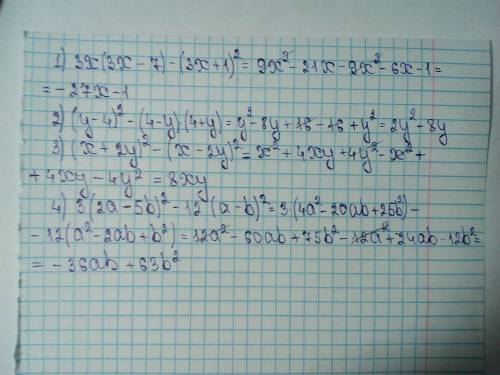 1) 3x(3x-7)-(3x+1)²=9x²-21x-9x²-6x-1=
=-27x-1
2) (y-4)²-(4-y)(4+y)=y²-8y+16-16+y²=2y²-8y
3) (x+2y)²-(x-2y)²=x²+4xy+4y²-x²+
+4xy-4y²=8xy
4) 3(2a-5b)²-12(a-b)²=3(4a²-20ab+25b²)-
-12(a²-2ab+b²)=12a²-60ab+75b²-12a²+24ab-12b²=
=-36ab+63b²